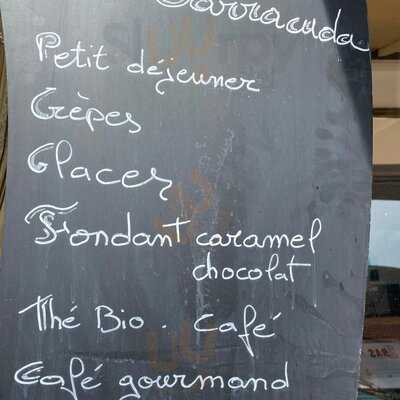 Barracuda
Petit déjeuner
Crêpes
Glaces
Fondant caramel
chocolat
Thé Bio . Café
Café gourmand